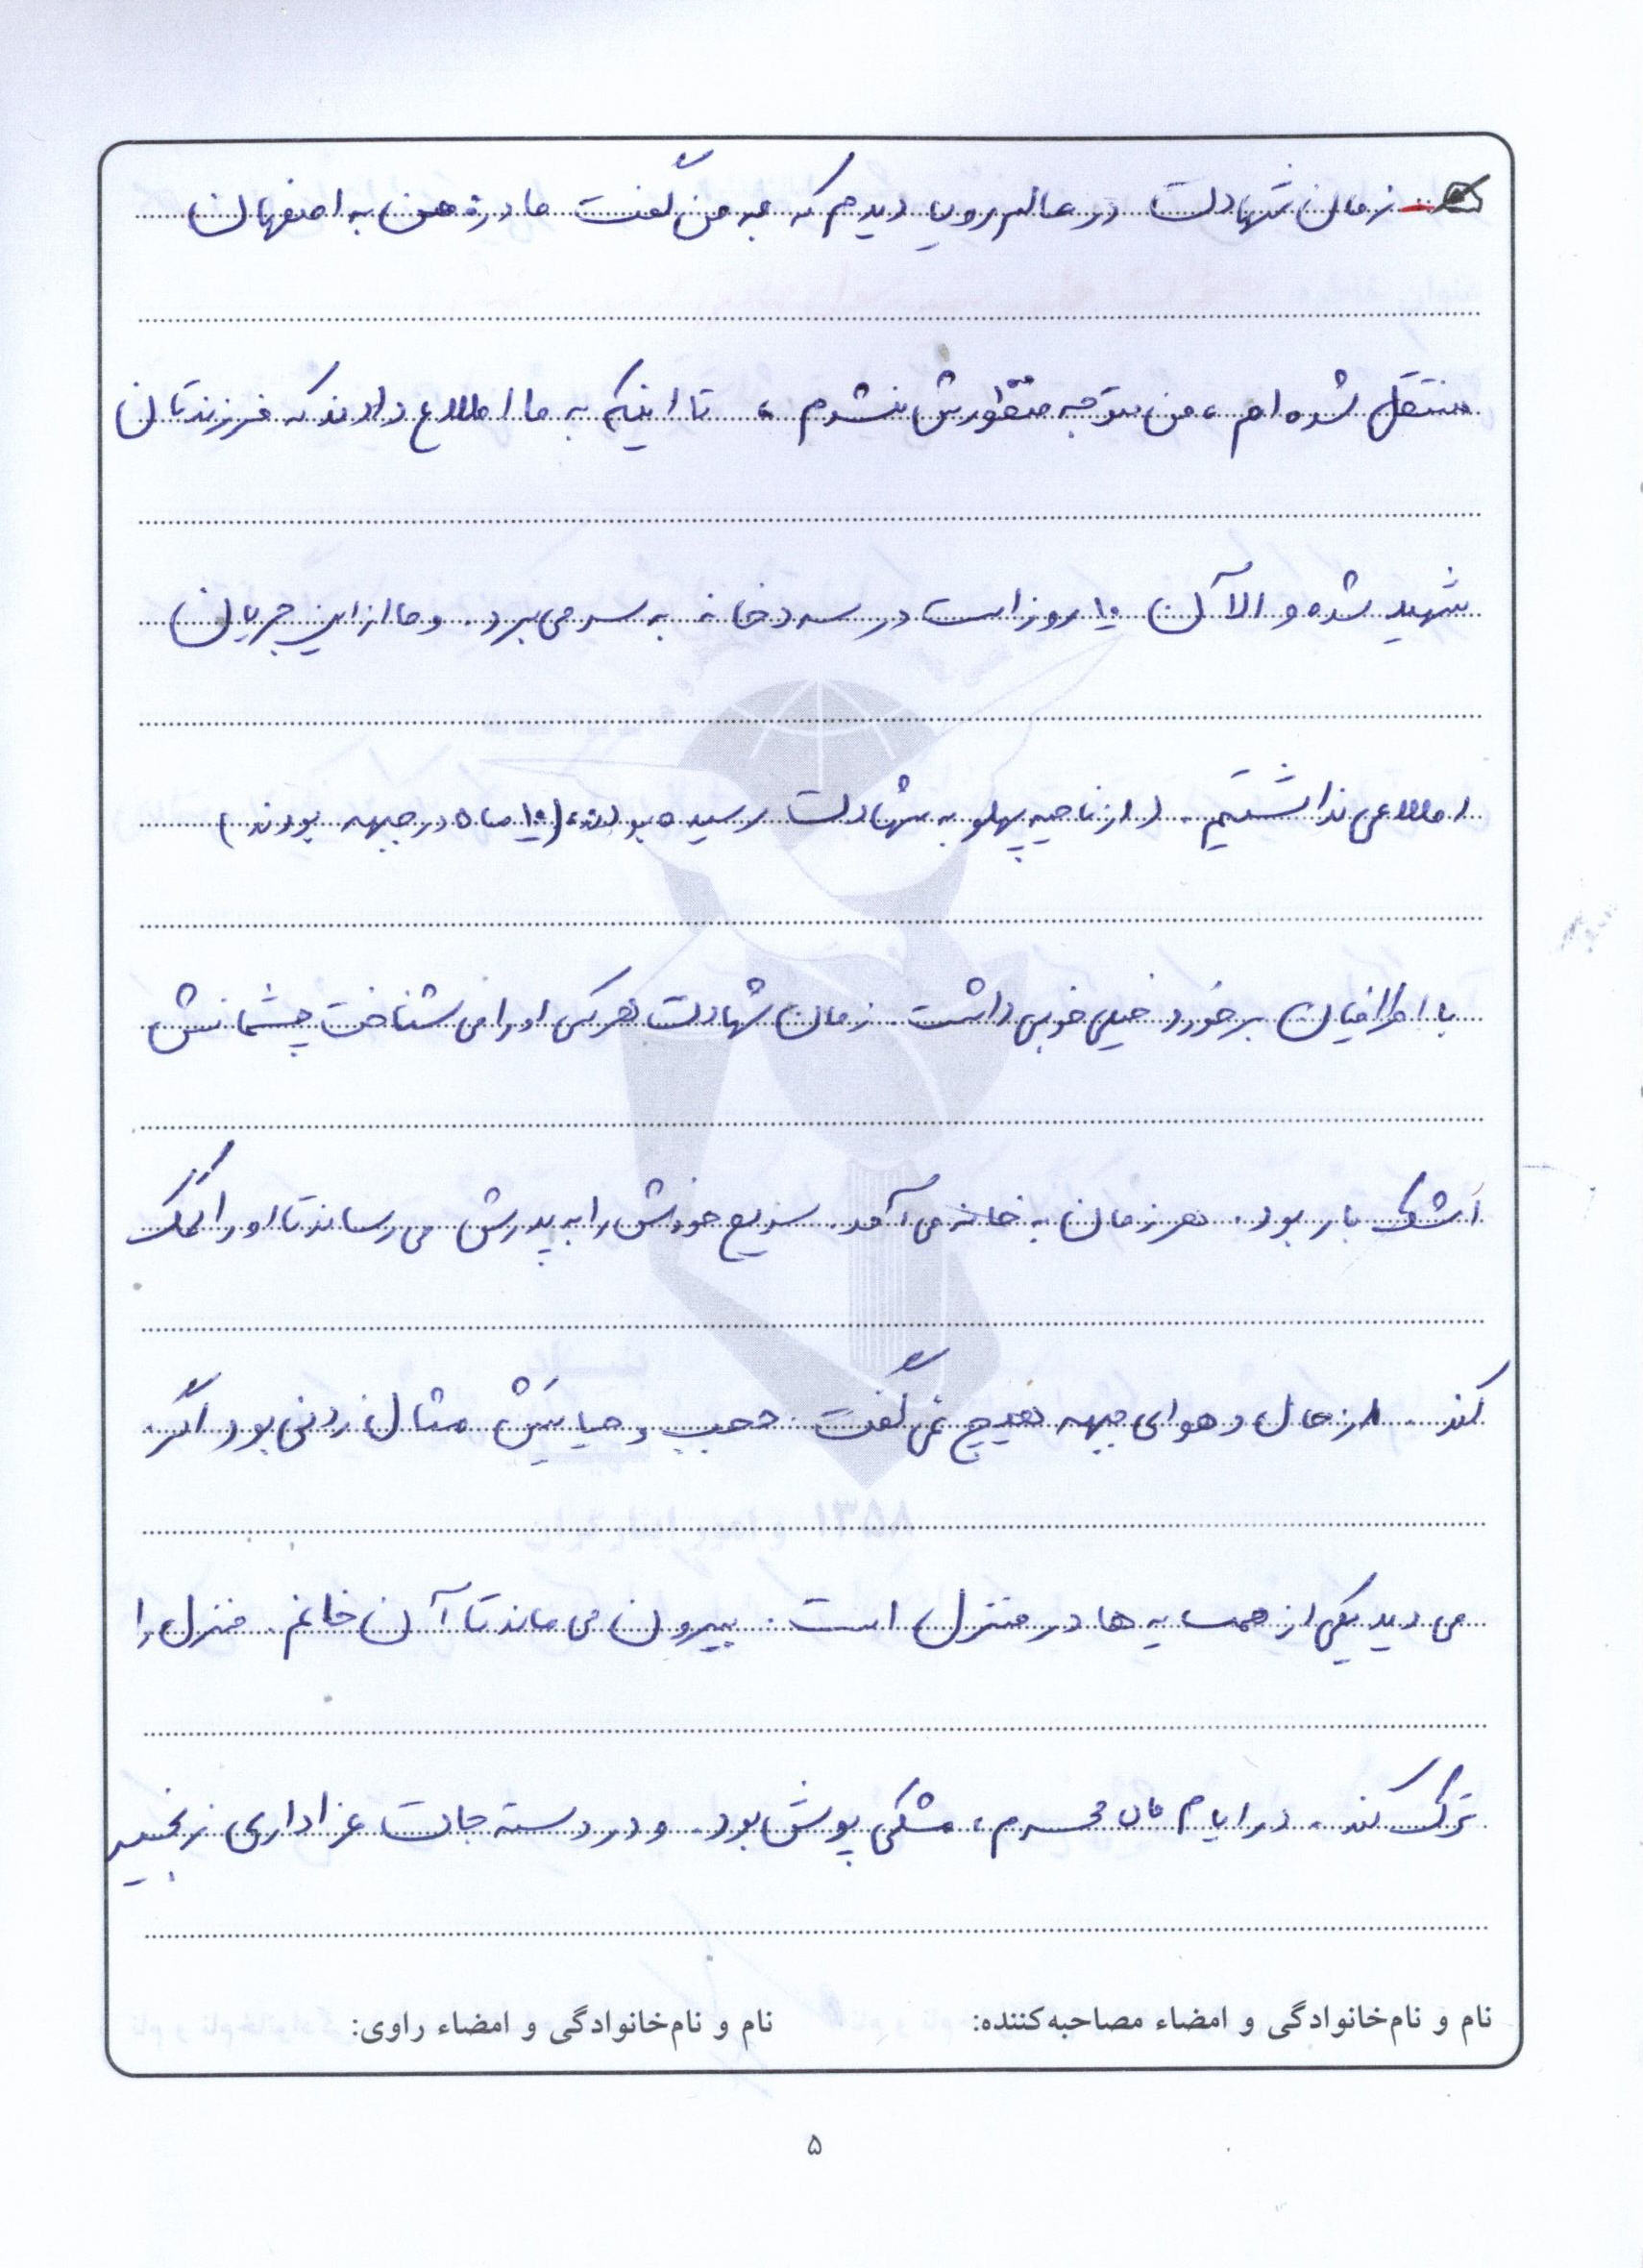 زمان شهادت در عالم رویا دیدم که به من گفت مادر من به اصفهان
منتقل شده ام ، من متوجه منظورش نشدم ، تا اینکه به ما اطلاع دادند که فرزندتان
شهید شده و الآن ۱۰ روز است در سردخانه به سر می برد. و ما از این جریان
اطلاعی نداشتیم. (از ناحیه پهلو به شهادت رسیده بودند، (۱۰ ماه در جبهه بودند)
با اطرافیان برخورد خیلی خوبی داشت. زمان شهادت هر کس او را می شناخت چشمانش
اشک بار بود. هر زمان به خانه می آمد. سریع خودش را به پدرش می رساند تا او را کمک
کند. از حال و هوای جبهه هیچ نمی گفت. حجب و حیایش مثال زدنی بود اگر
می دید یکی از همسایه ها در منزل است. بیرون می ماند تا آن خانم. منزل را
ترک کند. در ایام ماه محرم، مشکی پوش بود. و در دسته جات عزاداری زنجیر
نام و نام‌خانوادگی و امضاء مصاحبه‌کننده: نام و نام‌خانوادگی و امضاء راوی:
۵